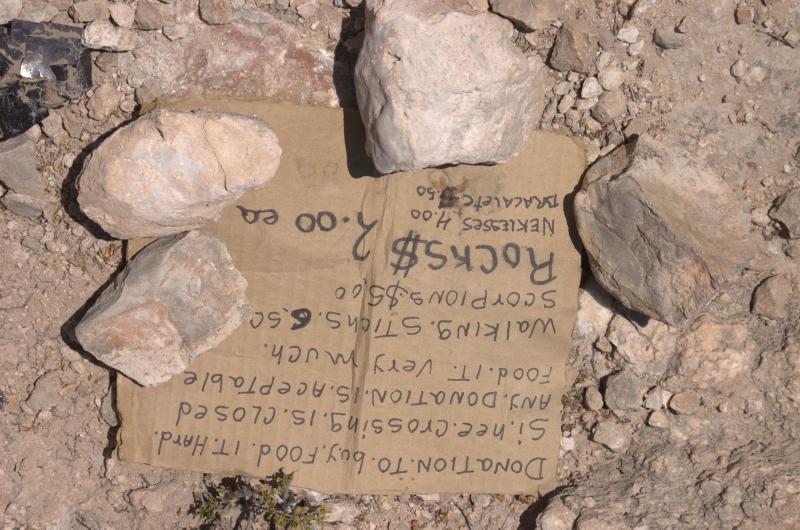 DONATION.TO.buy.FOOD.IT.HarD.
Si.nee.crossing.is.cLosed
ANy.DONATION.IS.ACEPTABLE
FOOD.IT.Very much.
WaLKiNg.STicKS.6.50
SCORPIONS.$5.00
ROCKS$ 2.00 ea
NEKLESSES 4.00
BRACALETS $.50